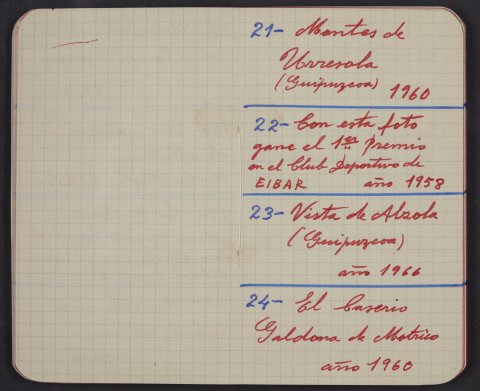 21- Montes de
Urresola
(Guipuzcoa) 1960
22- Con esta foto
gane el 1er Premio
en el Club Deportivo de
EIBAR año 1958
23- Vista de Alzola
(Guipuzcoa)
año 1966
24- El Caserio
Galdona de Motrico
año 1960